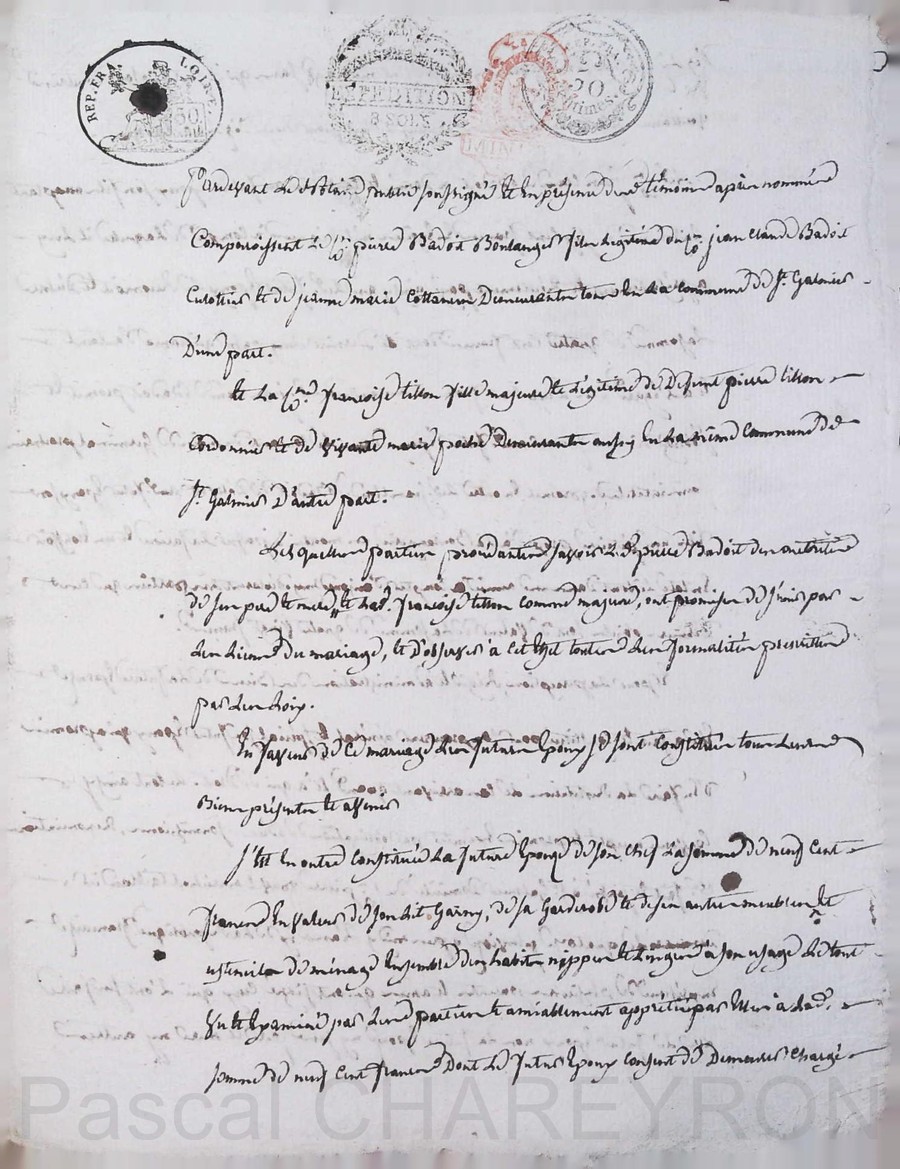 REP. FRA. LOIRE.
50
EXPEDITION
20
centimes
Pardevant Le Notaire public soussigné et En présence de té témoins après nommés
Comparoissent Le Cn. pierre Badoit Boulanger fils Légitime du Cn. jean Claude Badoit
Culottier et de jeanne marie Cottancin Demeurants tous En La commune de St. Galmier
D'une part.
Et La Cne. françoise tillon fille majeure et Légitime de Defunt pierre tillon
Cordonnier et de vivante marie Demeurante aussy En La même Commune de
St. Galmier D'autre part.
Lesquelles parties procédantes savoir Le d. pierre Badoit de L'autorité
de ses père et mère, et Lad. françoise tillon comme majeure, ont promis de s'unir par
Les Liens du mariage, et D'observer à cet effet toutes Les formalités prescrittes
par Les Loix.
En faveur de Ce mariage Les futurs Epoux se sont constitués tous Leurs
Biens présents et avenir
S'est En outre Constituée La future Epouse de son chef La somme de neuf Cent
francs En valeur de son Lit Garny, de sa Garderobe et de ses autres meubles et
ustenciles de ménage Ensemble des habits nippes et Linges à son usage Le tout
vu et Examiné par Les parties et amiablement apprétié par Elles à Lad.
somme de neuf Cent francs Dont Le futur Epoux consent de Demeurer Chargé
Pascal CHAREYRON